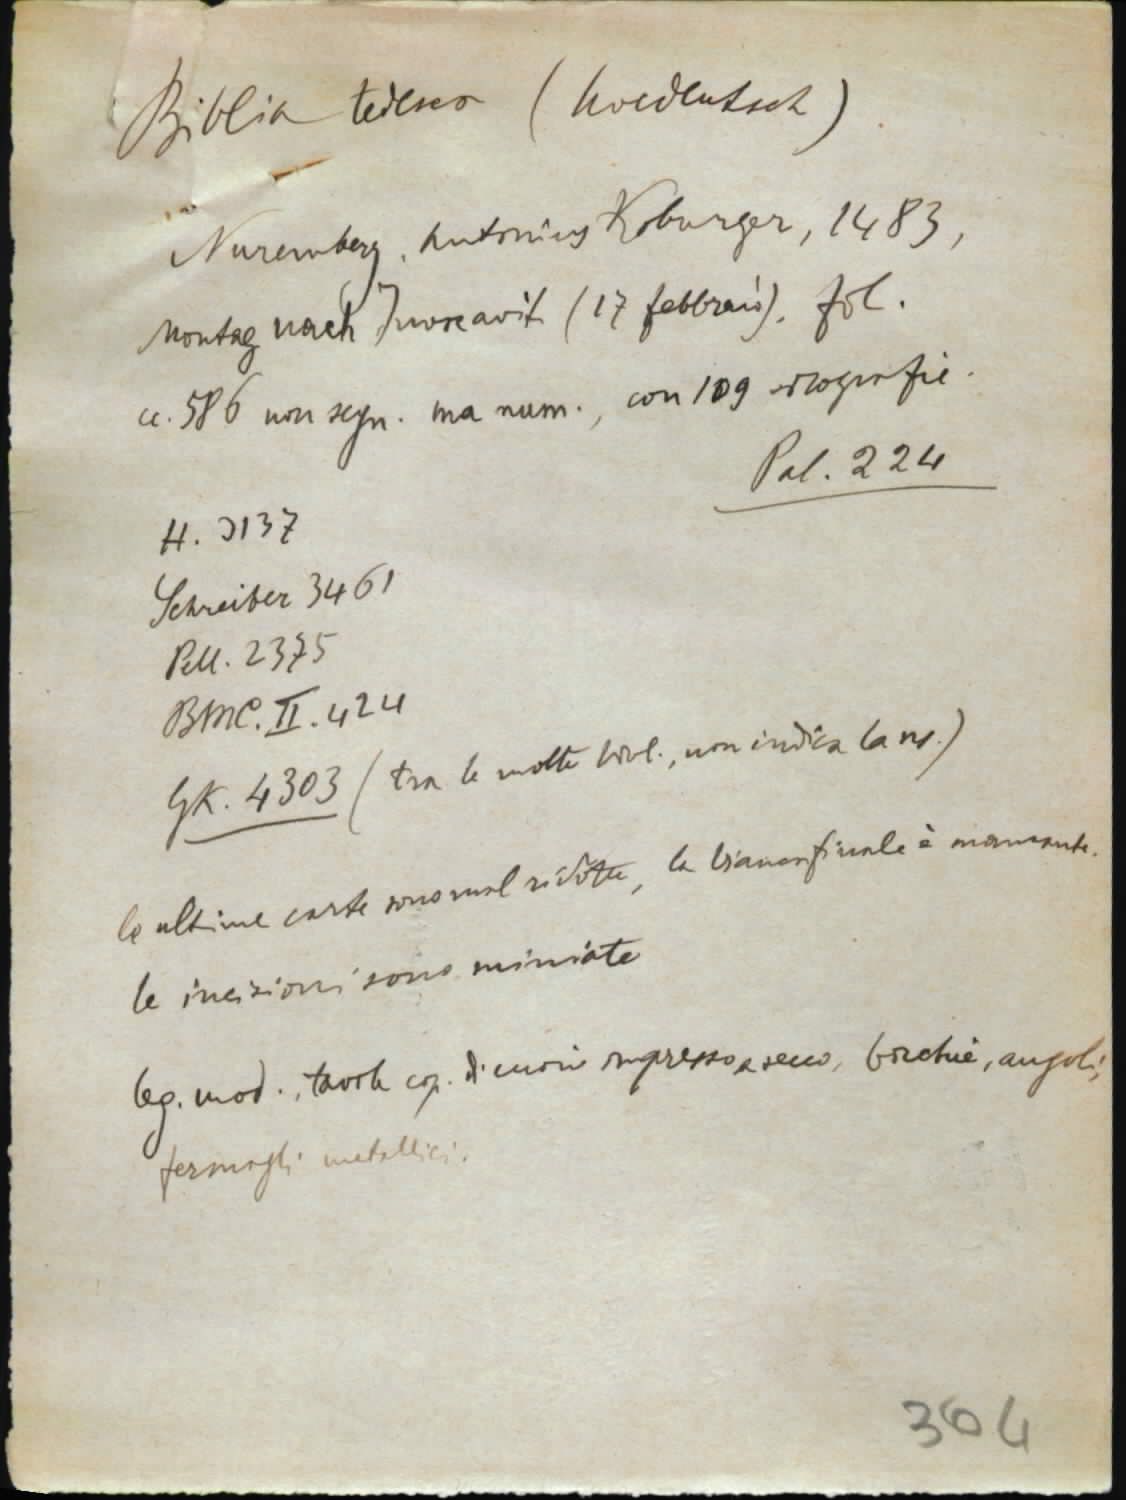 Biblia tedesca (hocdeutsch)
Nuremberg, Antonius Koburger, 1483,
Montag nach Invocavit (17 febbraio), fol.
cc. 586 non segn. ma num., con 109 silografie.
Pal. 224
H. 3137
Schreiber 3461
Pell. 2375
BMC. II. 424
GK. 4303 (tra le molte bibl., non indica la ns.)
le ultime carte sono mal ridotte, la bianca finale è mancante.
le incisioni sono miniate
leg. mod., tavole cop. di cuoio impresso a secco, borchie, angoli,
fermagli metallici.
304